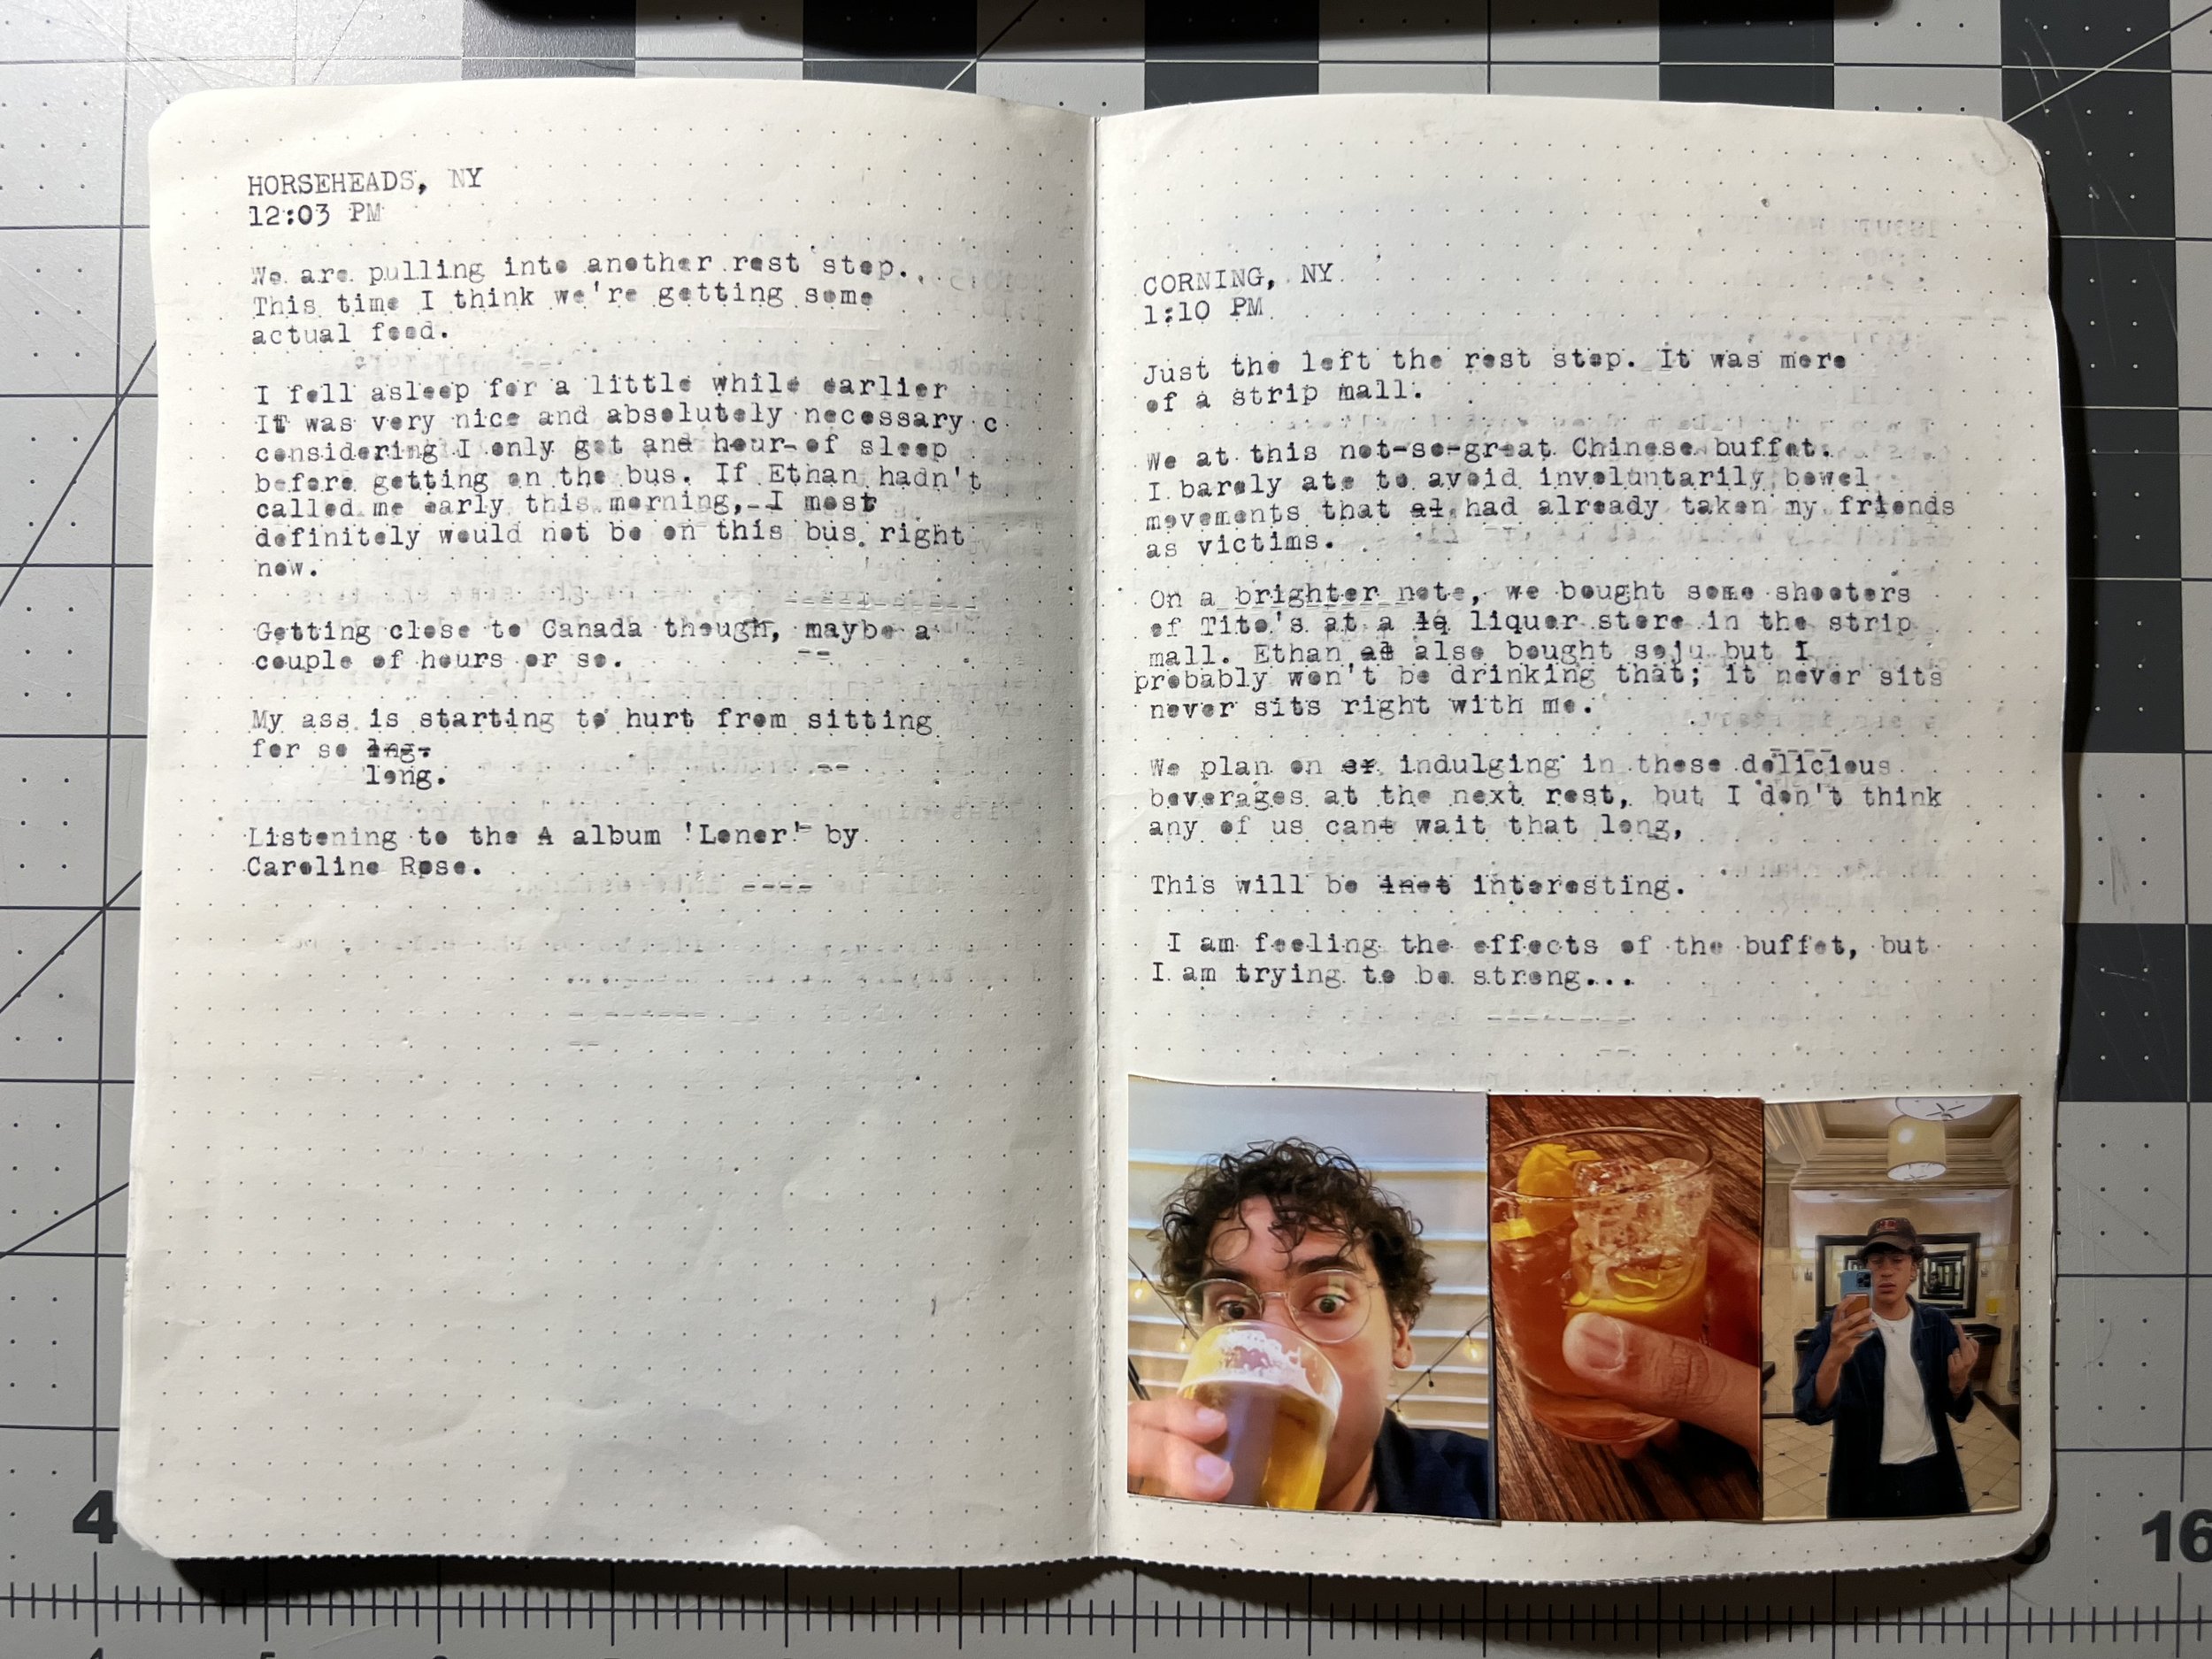 HORSEHEADS, NY
12:03 PM
We are pulling into another rest stop.
This time I think we're getting some
actual food.
I fell asleep for a little while earlier
It was very nice and absolutely necessary c
considering I only got and hour of sleep
before getting on the bus. If Ethan hadn't
called me early this morning, I most
definitely would not be on this bus right
now.
Getting close to Canada though, maybe a
couple of hours or so.
My ass is starting to hurt from sitting
for so lng.
long.
Listening to the A album 'Loner' by
Caroline Rose.
CORNING, NY
1:10 PM
Just the left the rest stop. It was more
of a strip mall.
We at this not-so-great Chinese buffet.
I barely ate to avoid involuntarily bowel
movements that al had already taken my friends
as victims.
On a brighter note, we bought some shooters
of Tito's at a lq liquor store in the strip
mall. Ethan al also bought soju but I
probably won't be drinking that; it never sits
never sits right with me.
We plan on er indulging in these delicious
beverages at the next rest, but I don't think
any of us cant wait that long,
This will be inet interesting.
I am feeling the effects of the buffet, but
I am trying to be strong...
4
16
4